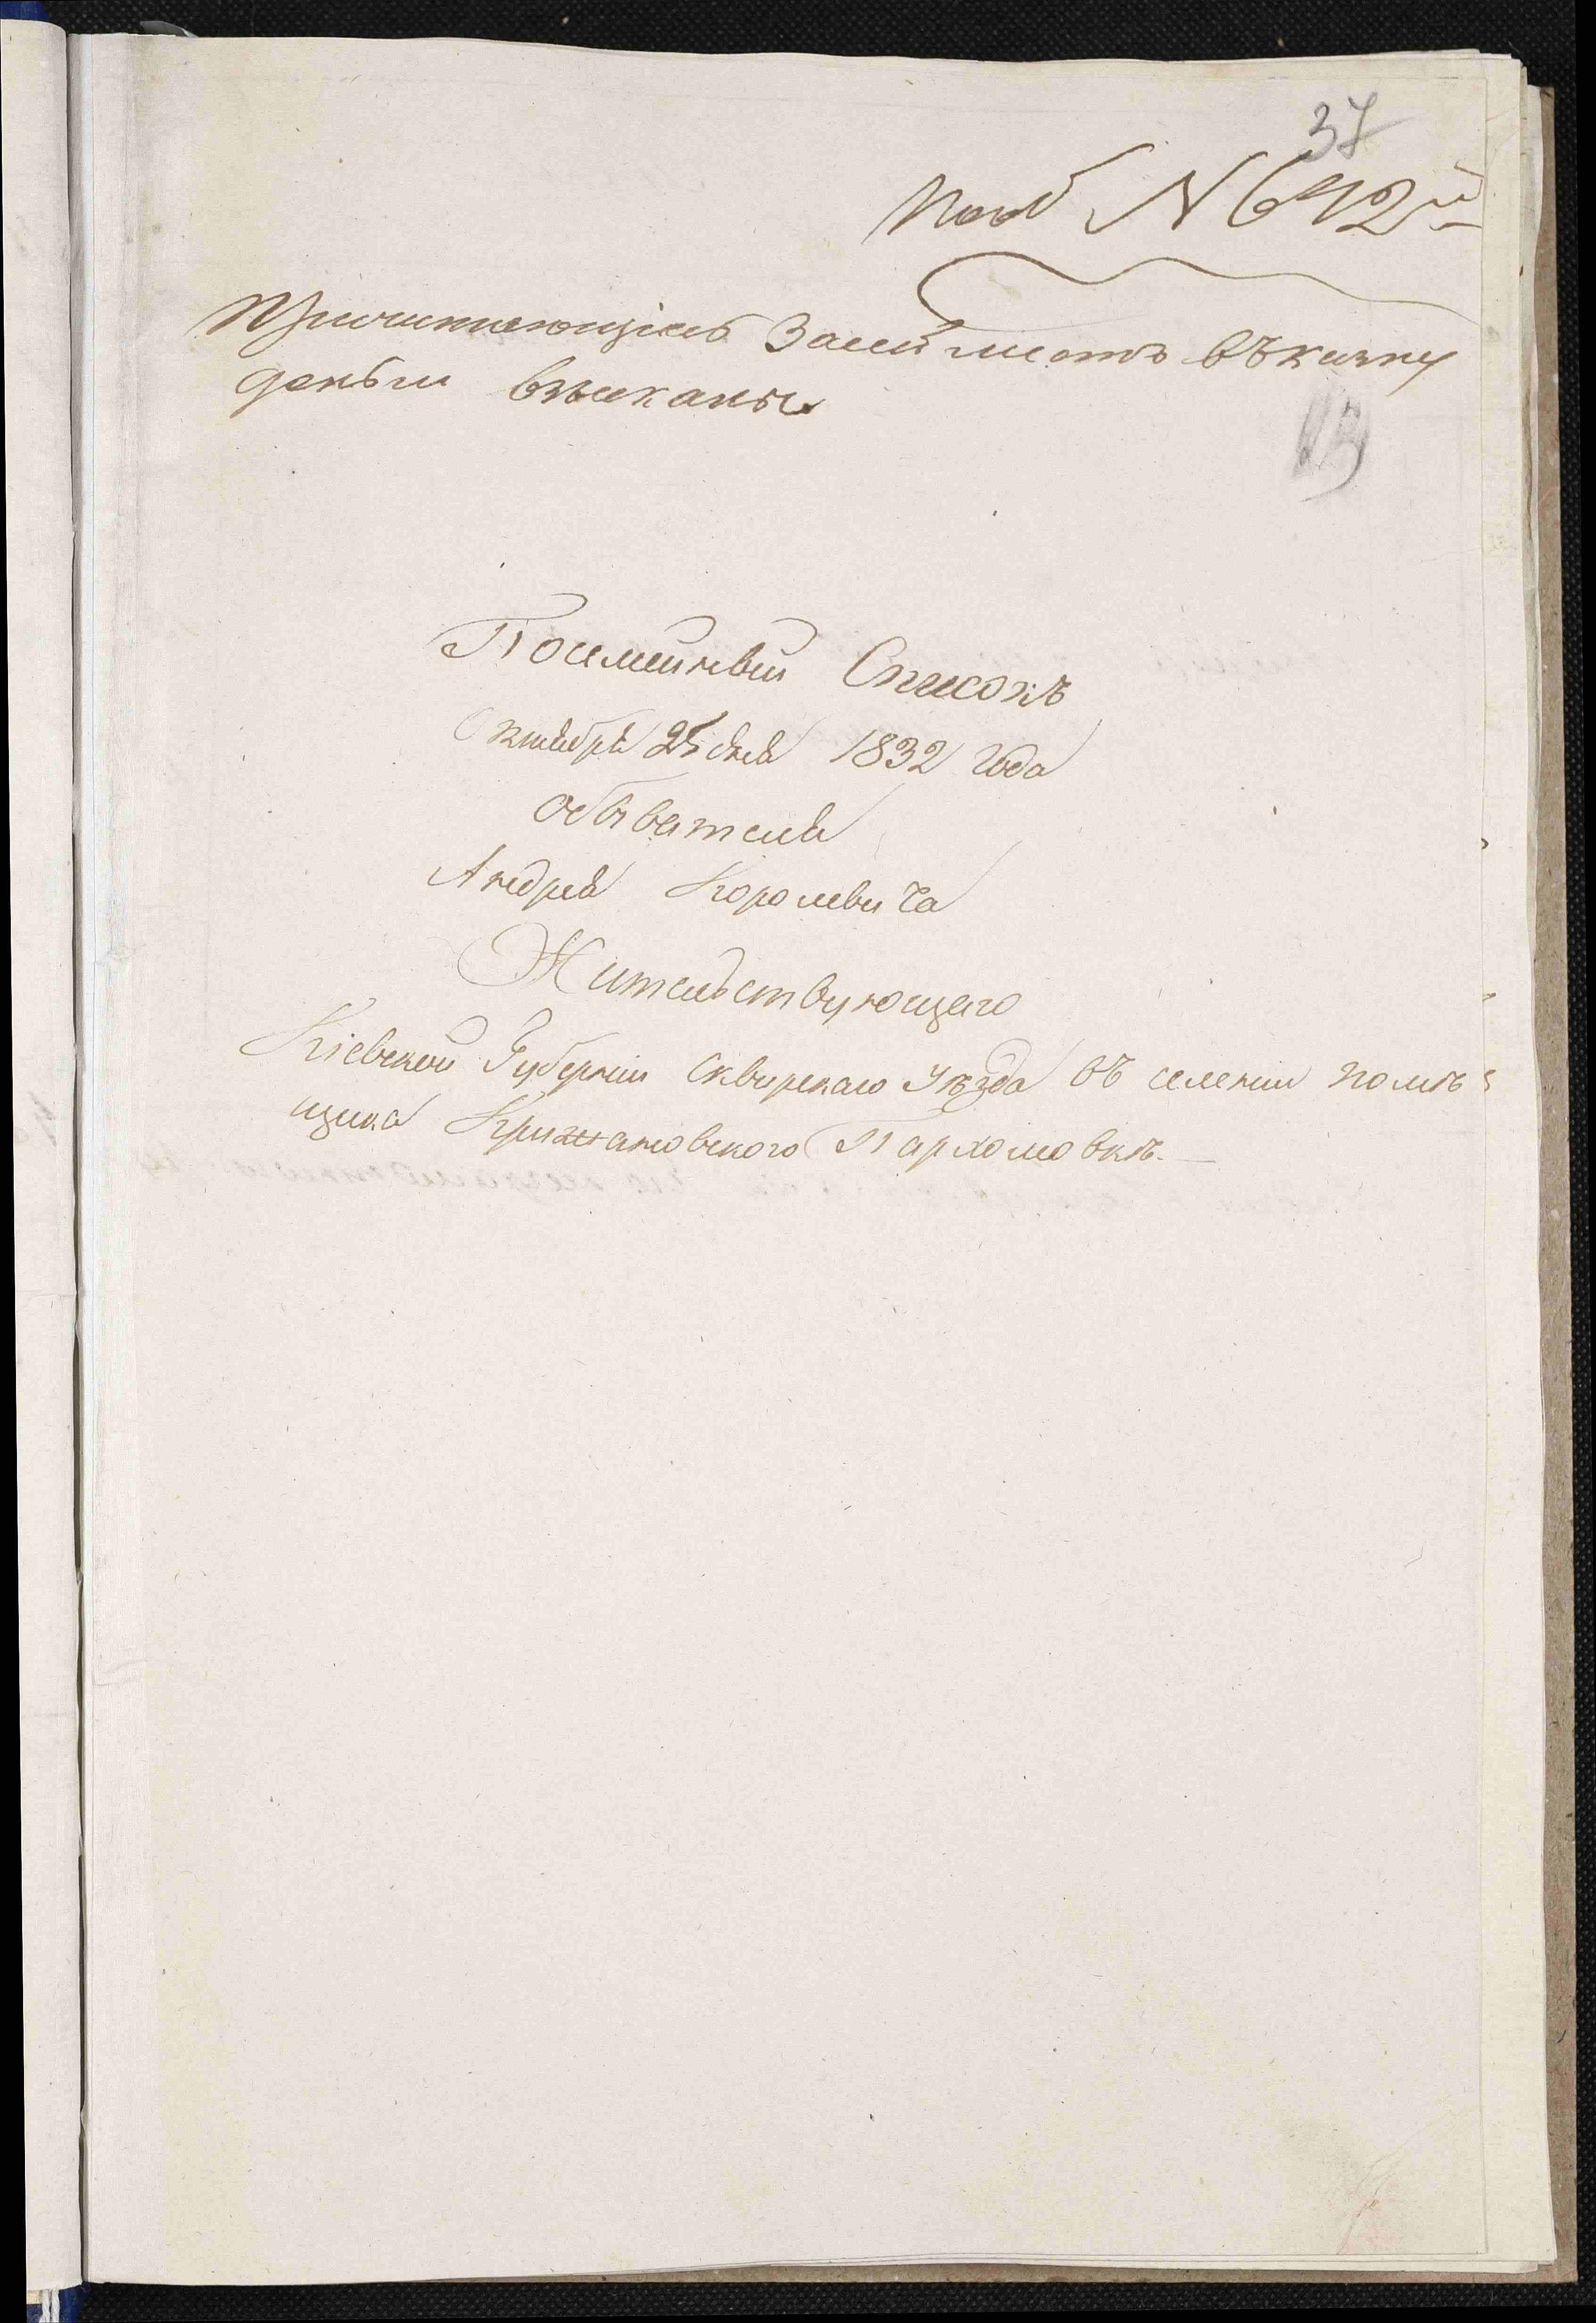 37
под N 642й
Причитающіясь За сей листъ въ казну
деньги взысканы
Посемейный Списокъ
Октября 25 дня 1832 года
обывателя
Андрея Королевича
Жительствующаго
Кіевской Губерніи Сквирскаго Уѣзда въ селеніи помѣ
щика Крижановского Пархомовкѣ.